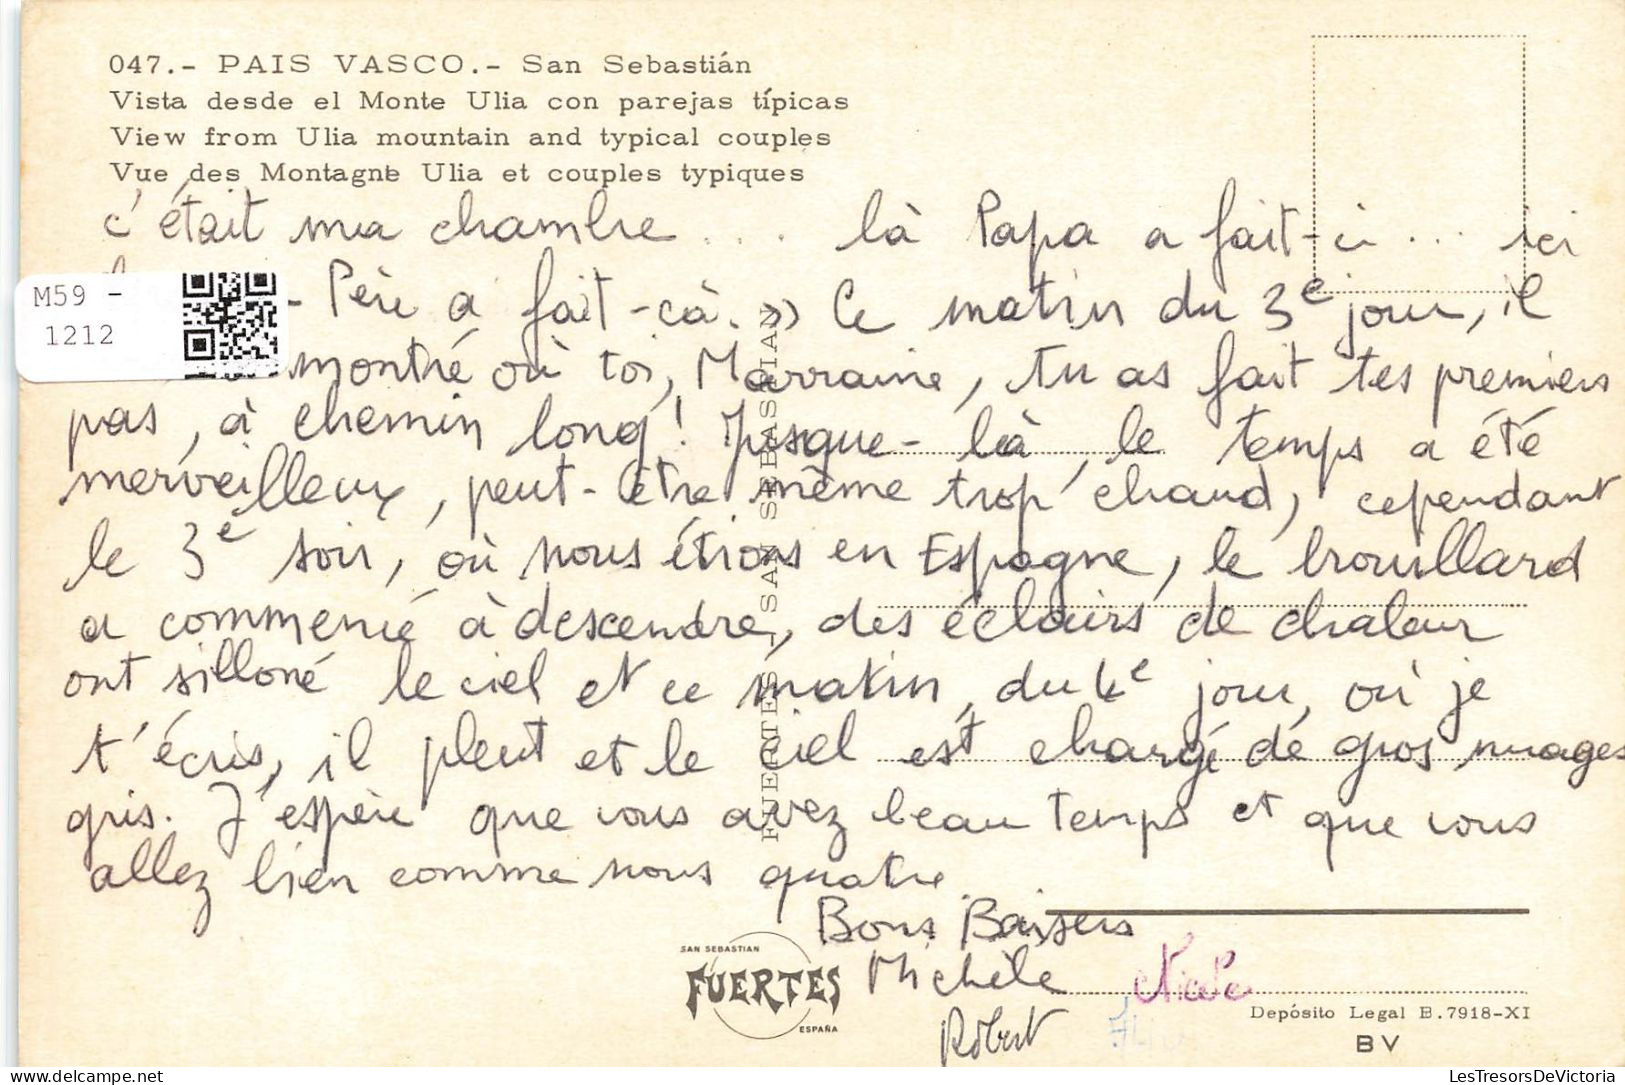 047.- PAIS VASCO.- San Sebastián
Vista desde el Monte Ulia con parejas típicas
View from Ulia mountain and typical couples
Vue des Montagne Ulia et couples typiques
c'était ma chambre... là Papa a fait-ci... ici
- Père a fait-cà.» Ce matin du 3e jour, il
montré où toi, Marraine, tu as fait tes premiers
pas, à chemin long! Jusque-là, le temps a été
merveilleux, peut-être même trop chaud, cependant
le 3e soir, où nous étions en Espagne, le brouillard
a commencé à descendre, des éclairs de chaleur
ont silloné le ciel et ce matin, du 4e jour, où je
t'écris, il pleut et le ciel est chargé de gros nuages
gris. J'espère que vous avez beau temps et que vous
allez bien comme nous quatre.
Bons Baisers
Michèle
Nicole
Robert
M59 -
1212
FUERTES, SAN SEBASTIAN
SAN SEBASTIAN
FUERTES
ESPAÑA
Depósito Legal B.7918-XI
BV
LesTresorsDeVictoria